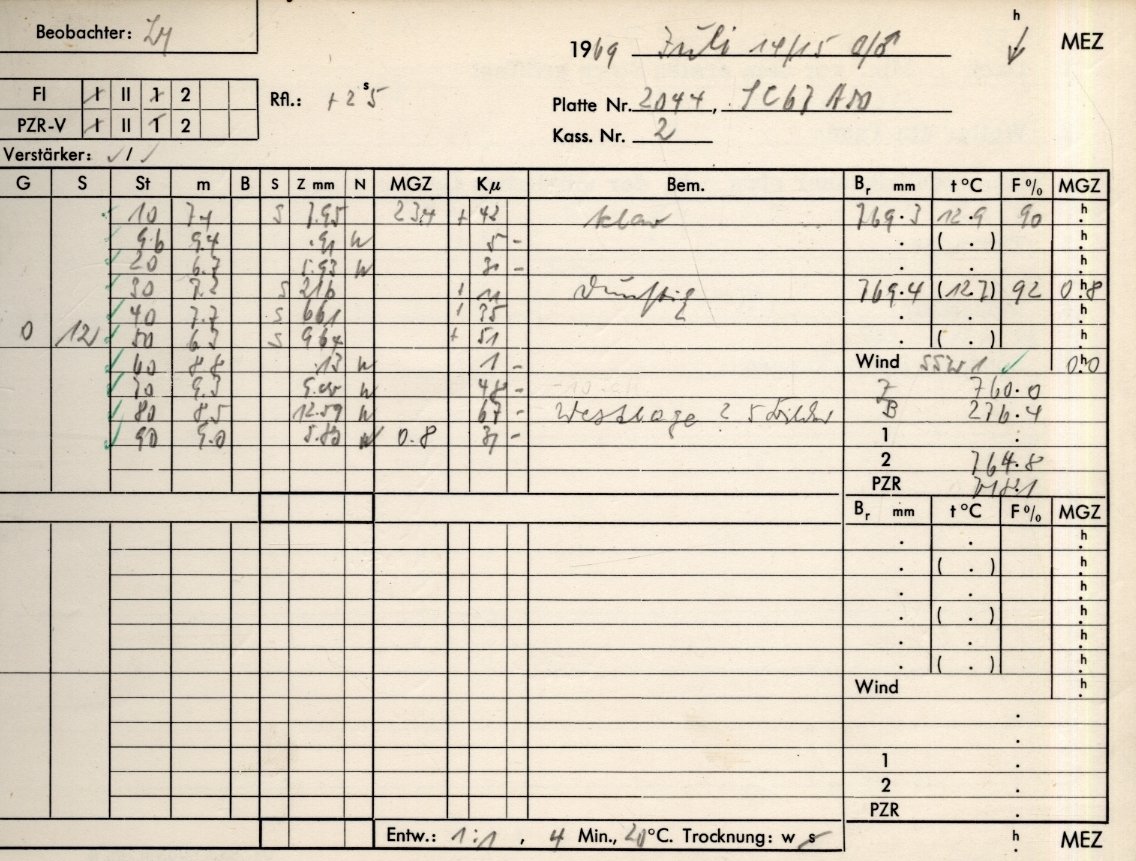 Beobachter:
h
1969 Juli 14/15 MEZ
FI I II 1 2
Rfl.: +2ˢ5
PZR-V I II 1 2
Platte Nr. 2044,
Kass. Nr. 2
Verstärker: 1
G S St m B S Z mm N MGZ Kμ Bem. Br mm t °C F % MGZ
10 S 7.95 23.4 + 42 klar 769.3 12.9 90 h
9.4 .91 W 5 - . ( . ) h
20 5.93 W 31 - . . h
30 7.2 S 216 + 11 dunstig 769.4 (12.7) 92 0.8 h
40 7.7 S 661 + 35 . . h
0 12 50 S 964 + 51 . ( . ) h
60 8.8 .13 W 1 - Wind SSW 1 0.0 h
70 9.3 W 48 - 760.0
80 8.5 12.59 W 67 - Westlage 2 5 B 276.4
90 9.0 5.83 W 0.8 31 - 1 .
2 764.8
PZR
Br mm t °C F % MGZ
. . h
. ( . ) h
. . h
. ( . ) h
. . h
. ( . ) h
Wind h
.
.
1 .
2 .
PZR .
Entw.: 1:1, 4 Min., 20 °C. Trocknung: w s h MEZ